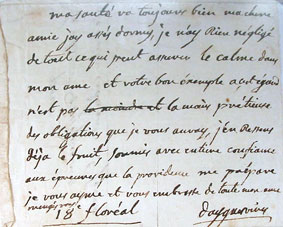 ma santé va toujours bien ma chere
amie j'ay assés dormi, je n'ay Rien négligé
de tout ce qui peut assurer le calme dans
mon ame et votre bon exemple a cet egard
n'est pas la moindre et la moins prétieuse
des obligations que je vous auray, j'en Ressens
deja le fruit, soumis avec entiere confiance
aux épreuves que la providence me prépare
je vous ayme et vous embrasse de toute mon ame
18 floréal